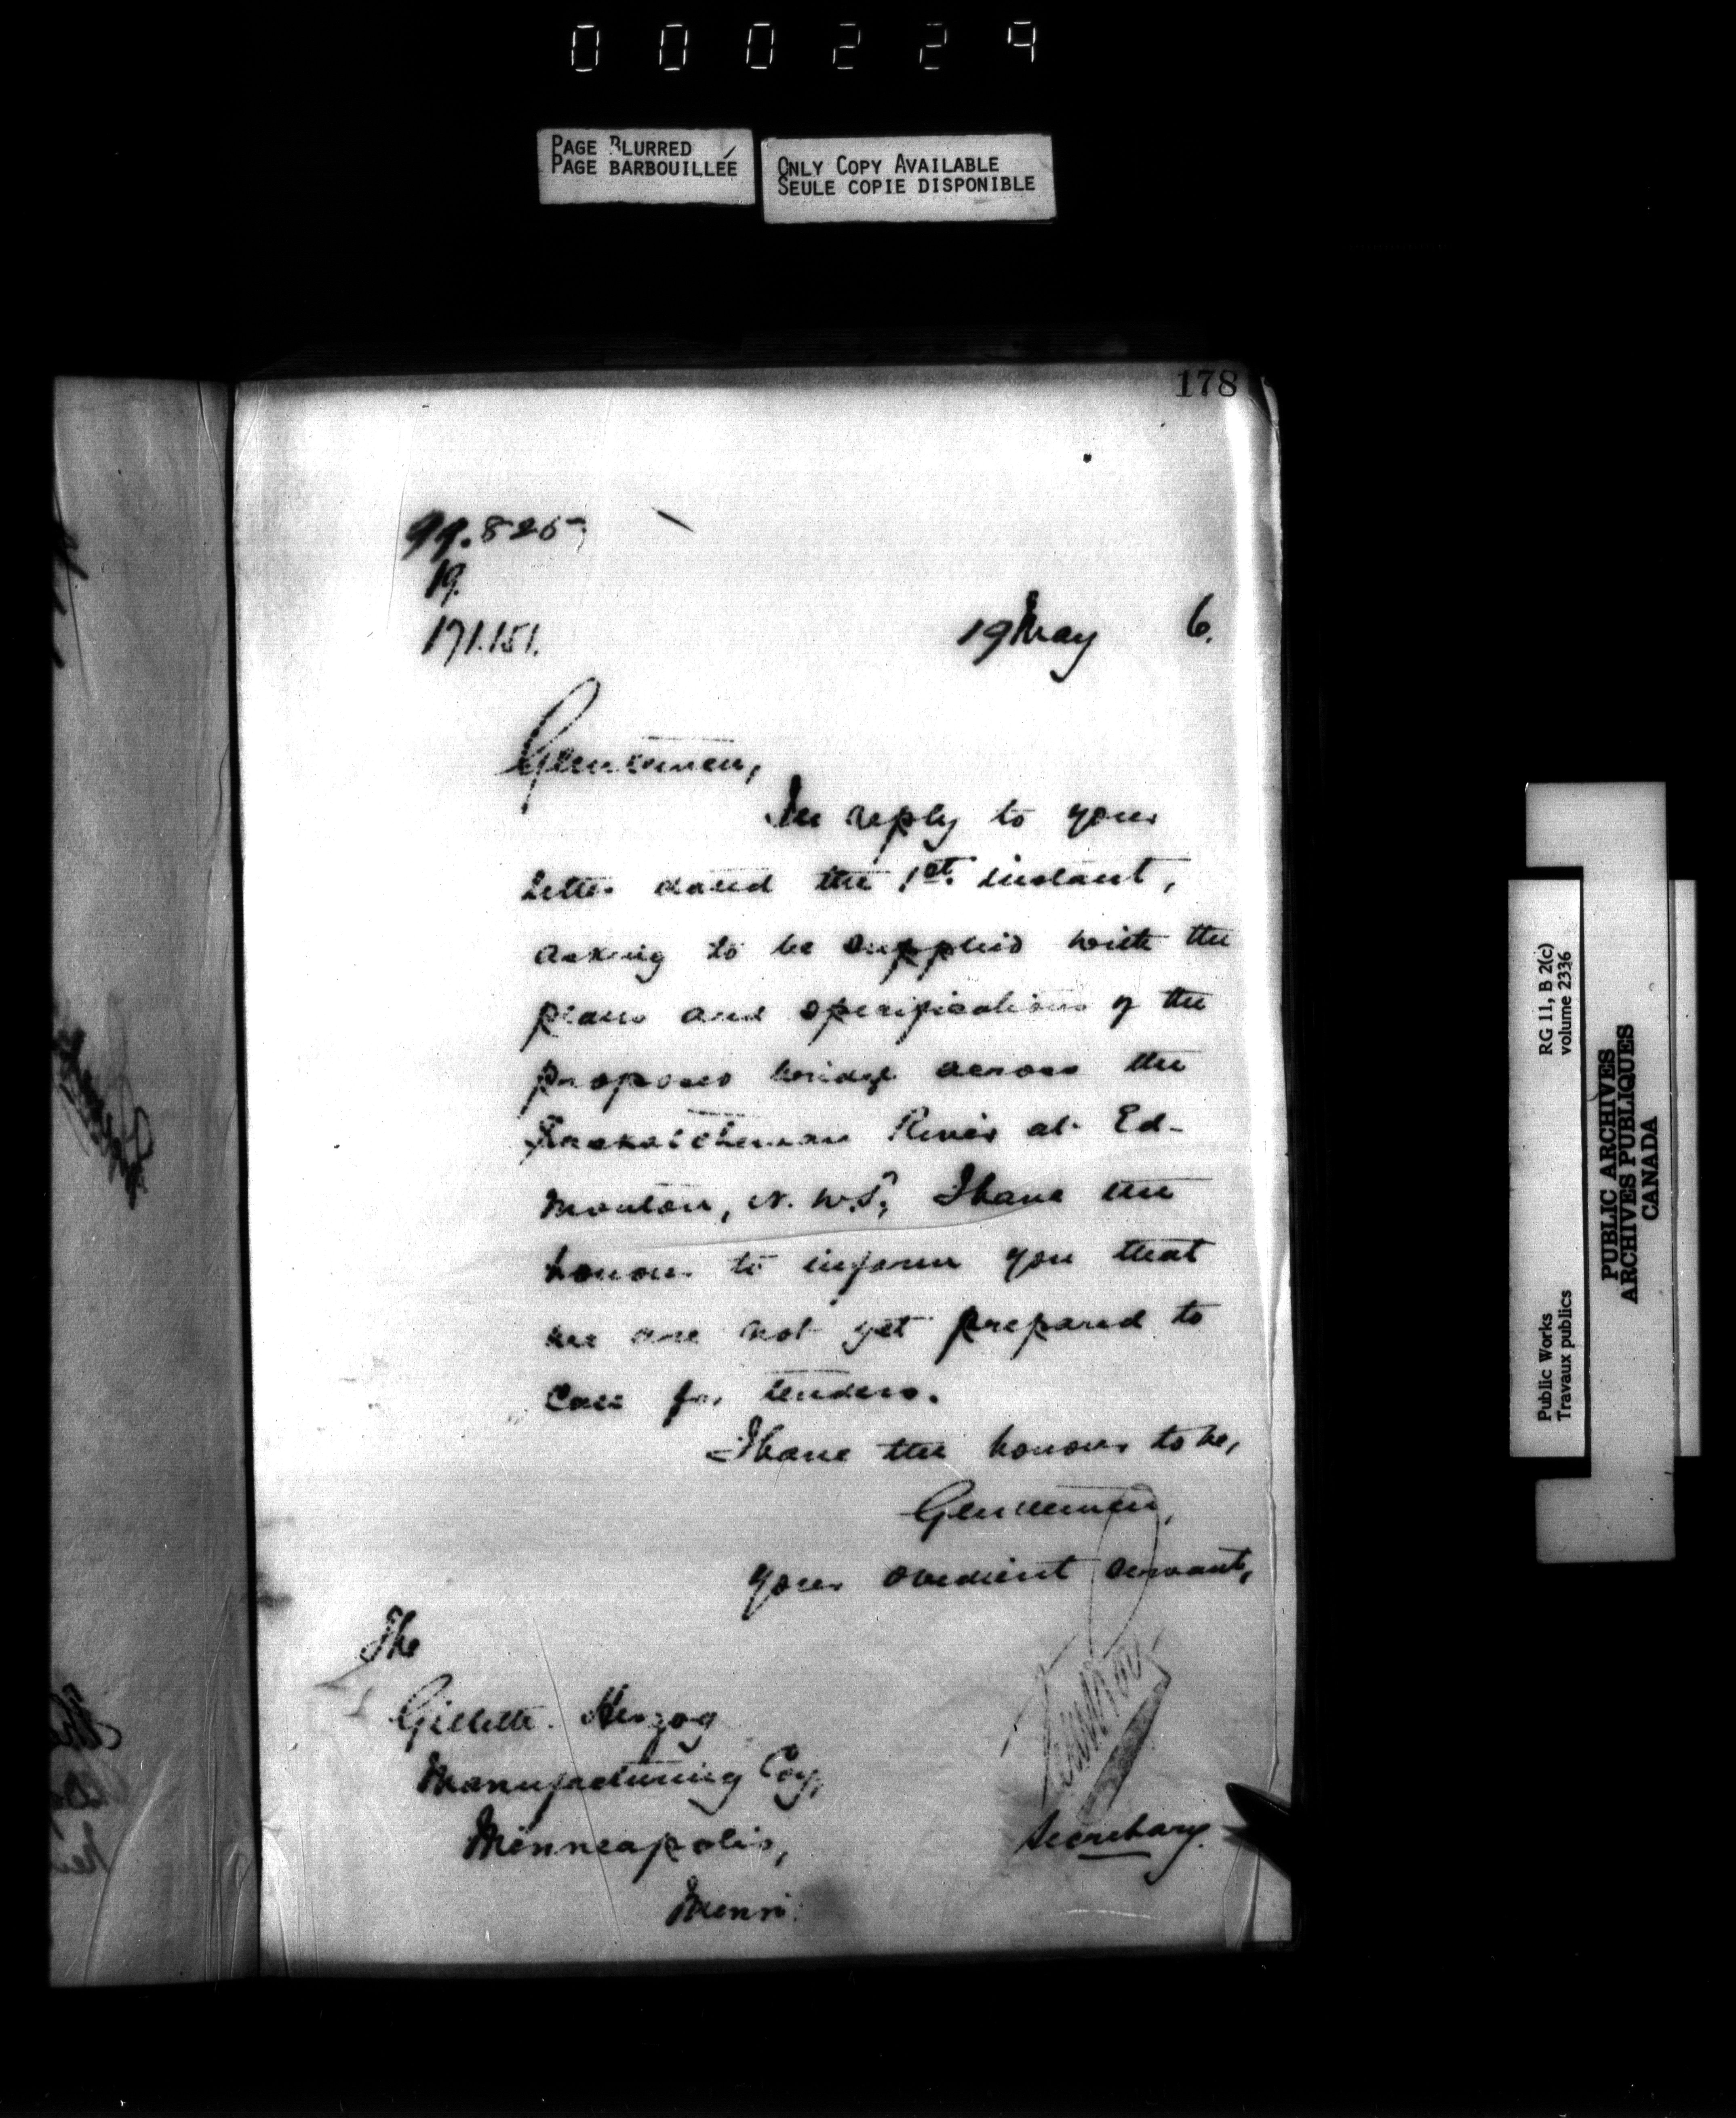 000229
PAGE BLURRED
PAGE BARBOUILLÉE
ONLY COPY AVAILABLE
SEULE COPIE DISPONIBLE
178
99.825
19.
171.151.
19 May 6.
Gentlemen,
In reply to your
letter dated the 1st. instant,
asking to be supplied with the
plans and specifications of the
proposed bridge across the
Saskatchewan River at Ed-
monton, N.W.T., I have the
honour to inform you that
we are not yet prepared to
call for tenders.
I have the honour to be,
Gentlemen,
your obedient servant,
Secretary.
The
Gillette-Herzog
Manufacturing Coy,
Minneapolis,
Minn.
Public Works
Travaux publics
RG 11, B 2(c)
volume 2336
PUBLIC ARCHIVES
ARCHIVES PUBLIQUES
CANADA